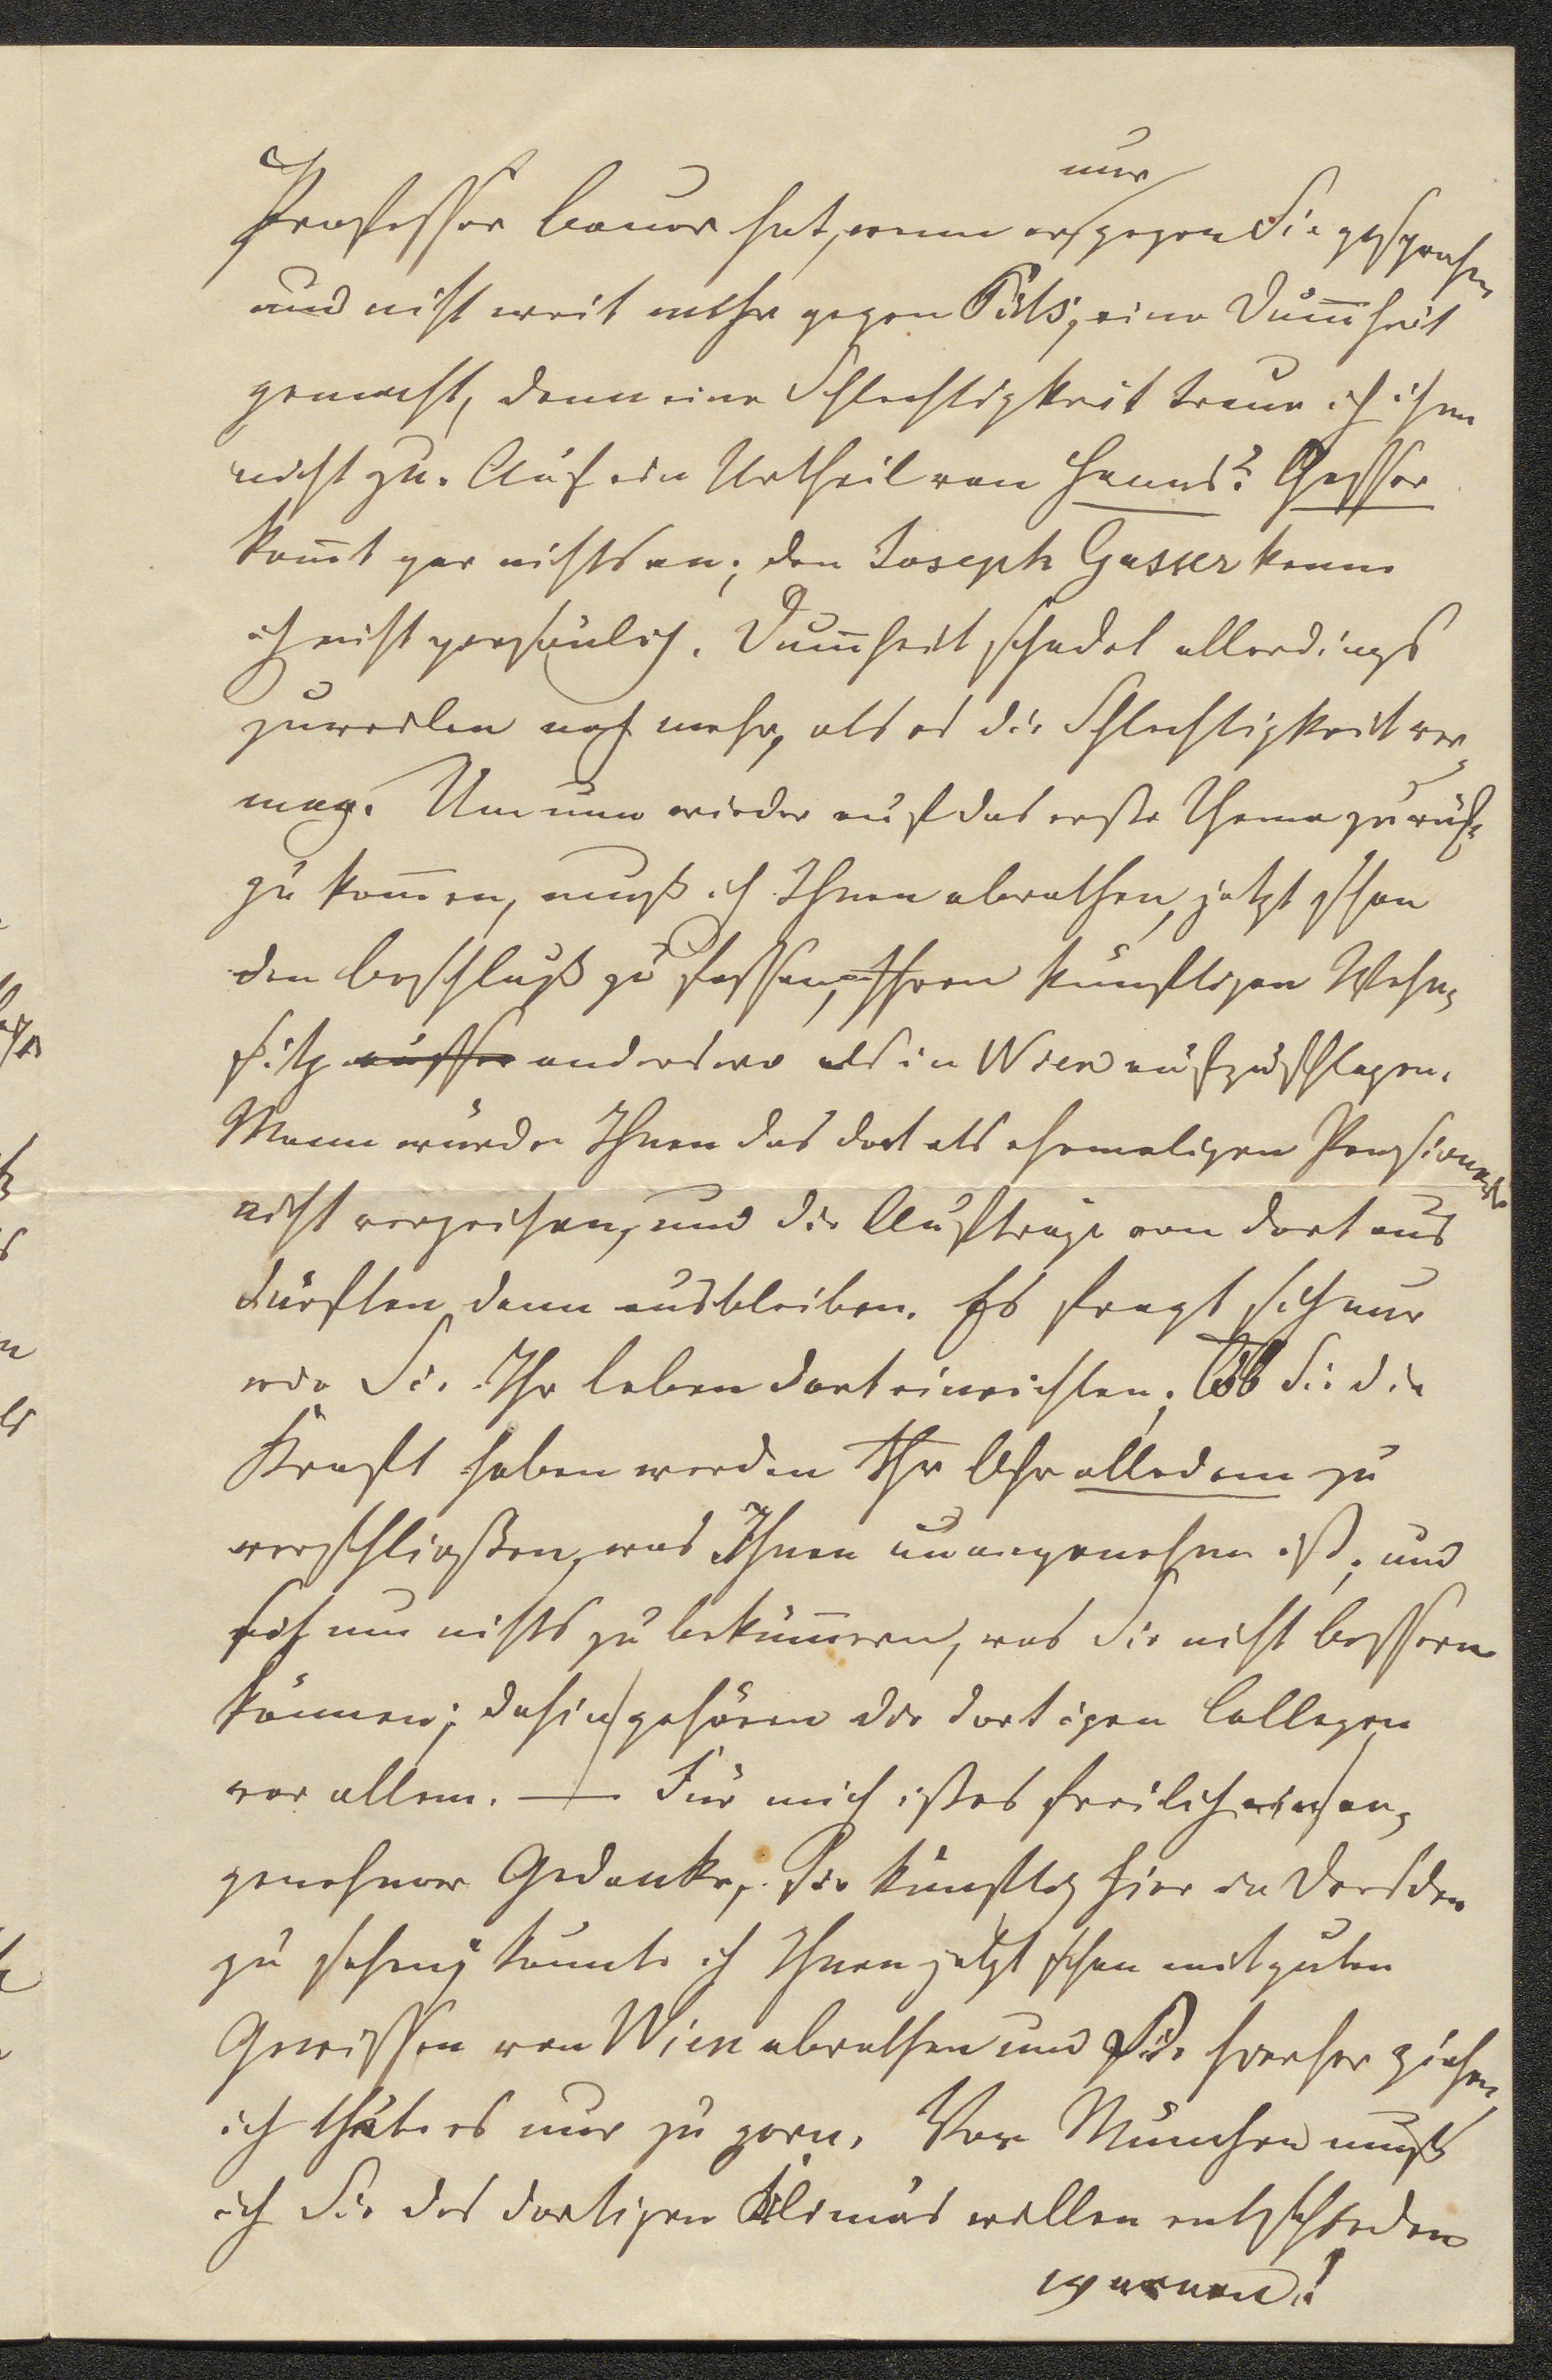 Professor Bauer hat, wenn er nur gegen Sie gesprochen
und nicht weit mehr gegen Pilz, eine Dum̅heit
gemacht, denn eine Schlechtigkeit traue ich ihm
nicht zu. Auf ein Urtheil von Hanns? Gasser
kom̅t gar nichts an; den Joseph Gasser kenne
ich nicht persönlich. Dum̅heit schadet allerdings
zuweilen noch mehr, als es die Schlechtigkeit ver-
mag. Um nun wieder auf das erste Thema zurück-
zu kom̅en, muß ich Ihnen abrathen, jetzt schon
den Beschluß zu fassen, Ihren künftigen Wohn-
sitz ausser anderswo als in Wien aufzuschlagen.
Mann würde Ihnen das dort als ehemaligen Pensionär
nicht verzeihen, und die Aufträge von dort aus
dürften dann ausbleiben. Es fragt sich nur
wie Sie Ihr Leben dort einrichten; Ob Sie die
Kraft haben werden Ihr Ohr alledem zu
verschließen, was Ihnen unangenehm ist, und
sich um nichts zu beküm̅ern, was Sie nicht bessern
können; dahin gehören die dortigen Collegen
vor allem. — Für mich ist es freilich ein an-
genehmer Gedanke, Sie künftig hier in Dresden
zu sehen; könnte ich Ihnen jetzt schon mit guten
Gewissen von Wien abrathen und Sie hierher ziehen,
ich thäte es nur zu gern. Vor München muß
ich Sie des dortigen Klimas willen entschieden
warnen!